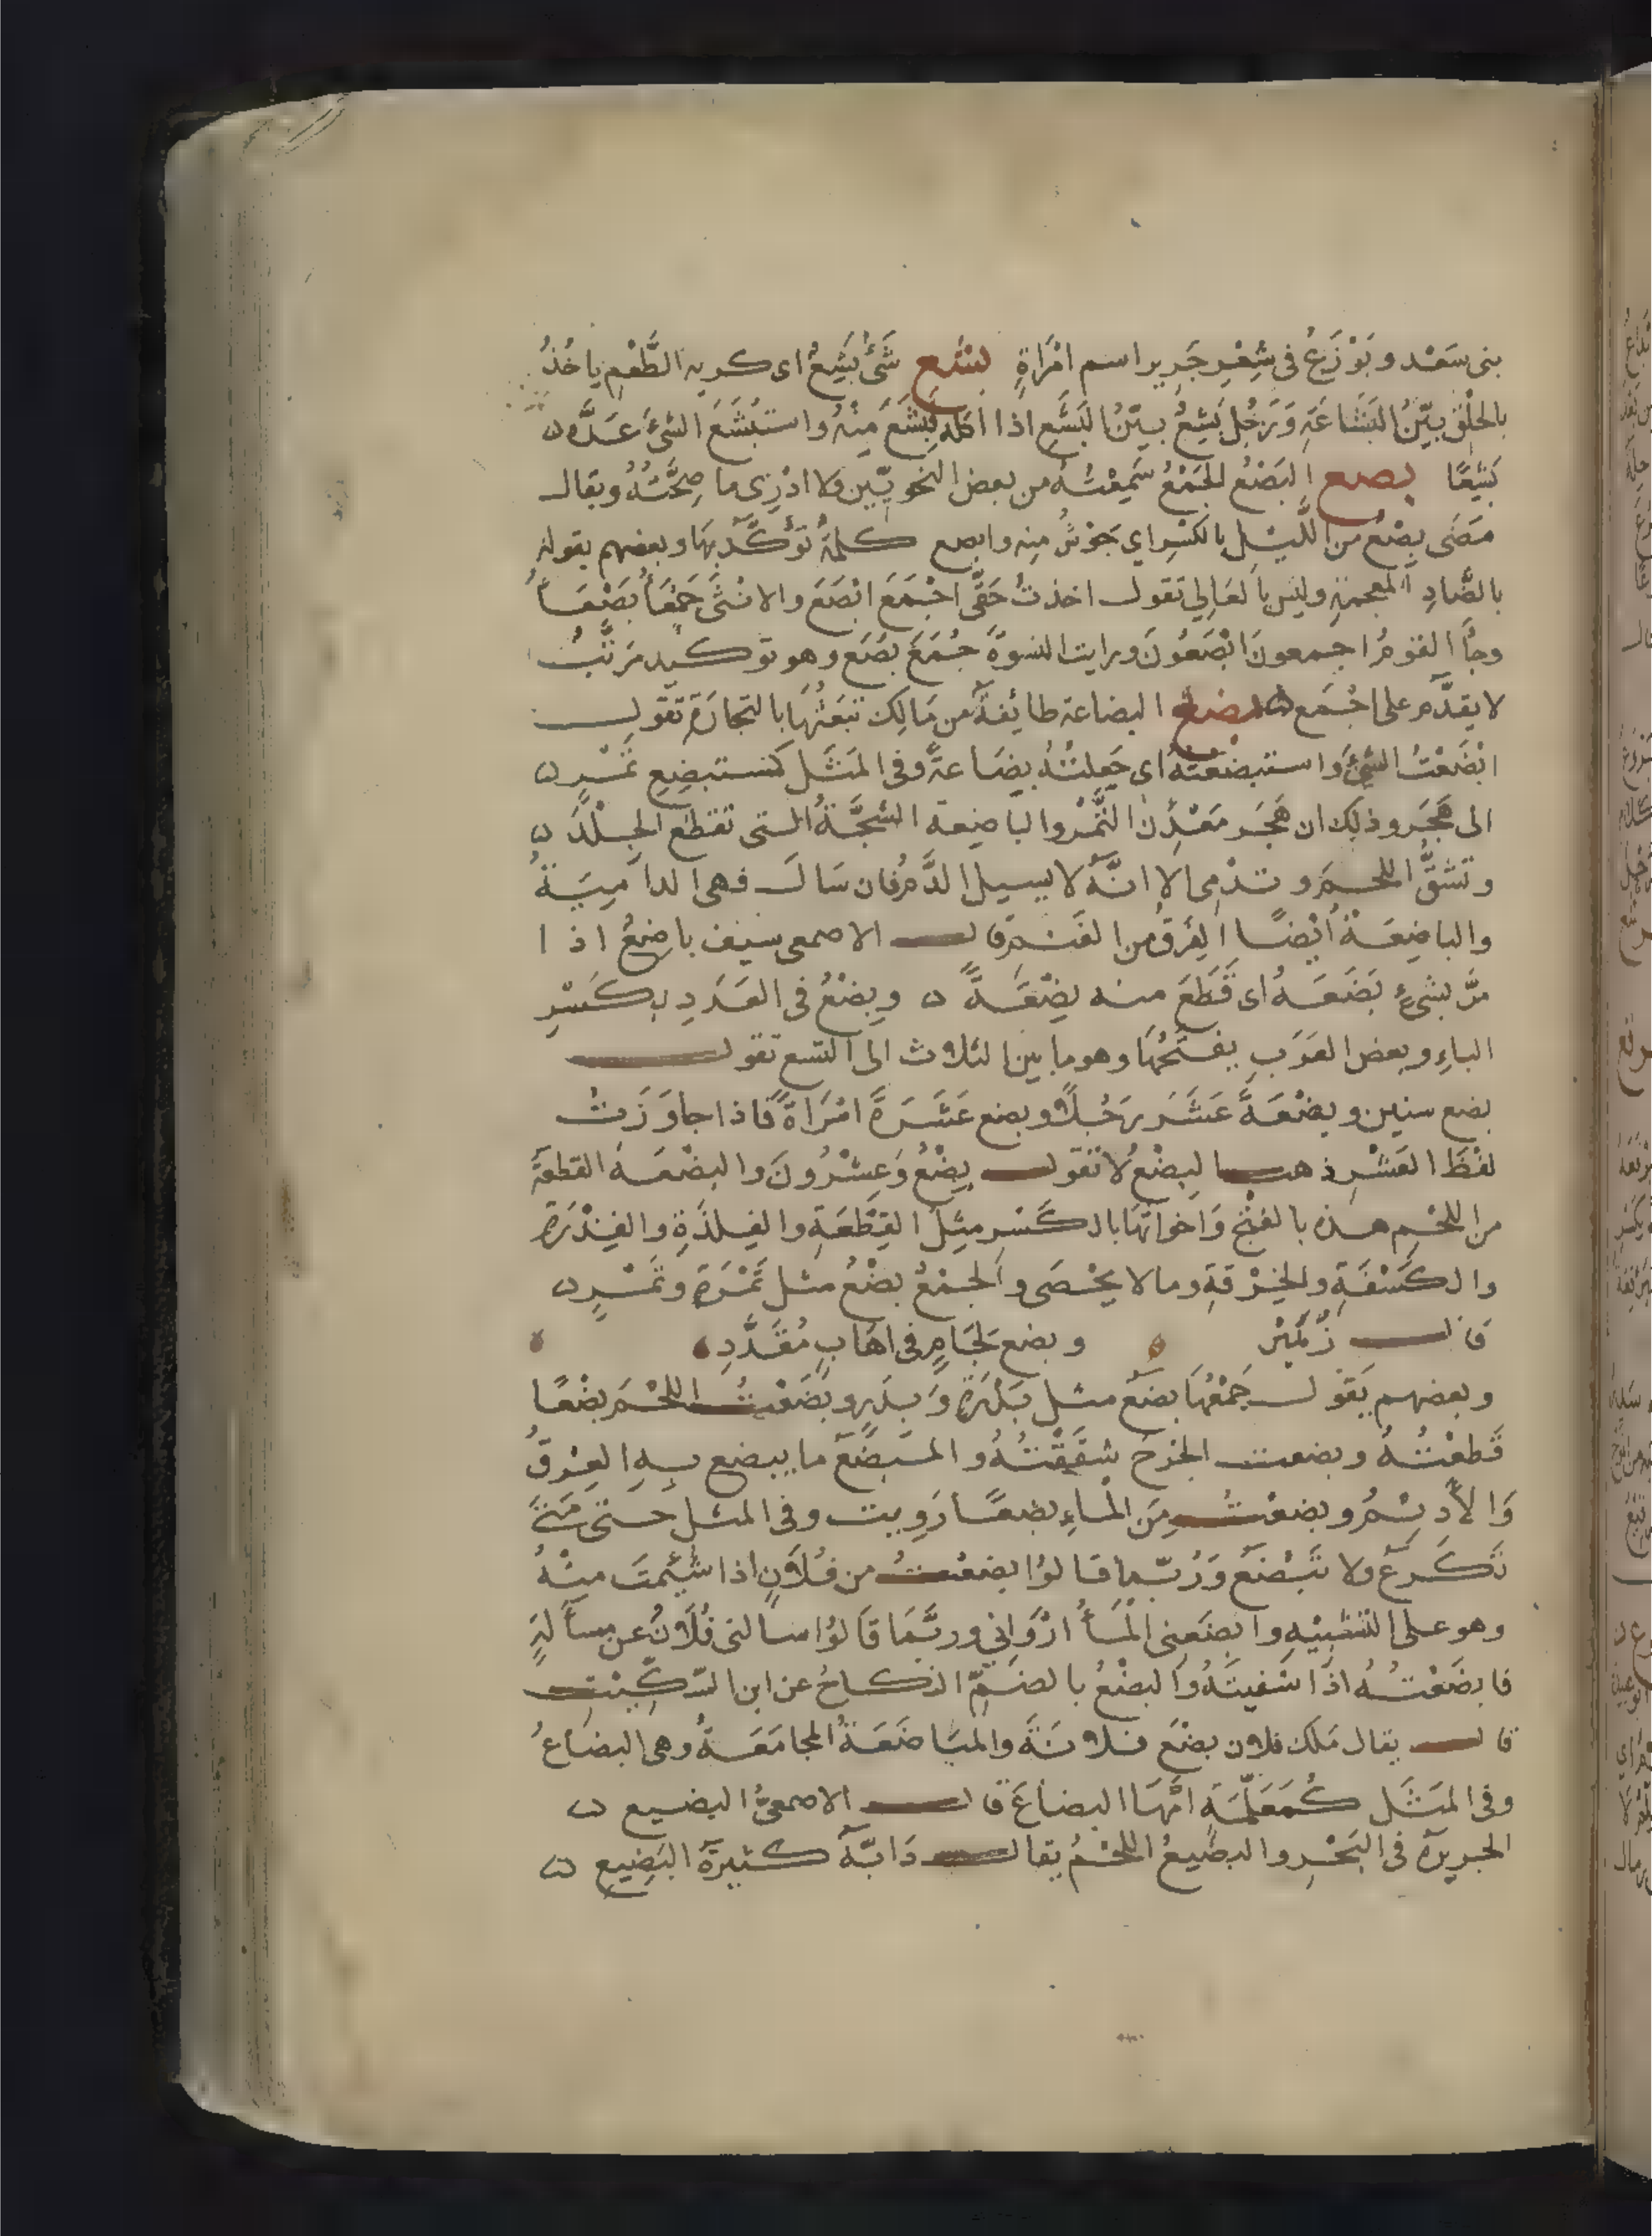 بنى سَعْد وبَوْزَعُ فى شِعْرِ جَرير اسم امْرَاةٍ بشع شَئٌ بَشِعٌ اى كريه الطَّعْم ياخُذُ
بالحلْق بيّنُ البَشَاعَةِ وَرَجُل بَشِعٌ بيّنُ البَشَعِ اذا اكله فبَشَعَ مِنْهُ واستَبْشَعَ الشئَ عَدَّه
بَشِعًا بصع البَصْعُ الجَمْعُ سَمِعْتُهُ من بعض النحويّين ولا ادْرِى ما صِحَّتُهُ ويقال
مَضَى بِصْعٌ من اللَّيْل بالكَسْرِ اي جَوْشٌ مِنه وابصع كلمةٌ تؤكَّدُ بهَا وبعضهم يقوله
بالضَّادِ المعجمةِ وليس بالعَالِي تقول اخذتُ حَقّى اجْمَعَ ابْصَعَ والانْثَى جَمْعَأُ بَصْعَأُ
وجَأَ القومُ اجمعونَ ابْصَعُونَ ورايت النسوةَ جُمَعَ بُصَعَ وهو توكيد مرَتَّبٌ
لا يقدَّم على اجْمَع بضع البضاعة طائفةٌ من مَالِك تبَعَثُهَا بالتجارَةِ تقول
ابْضَعْتُ الشئَ واستبضعْتهُ اى جَعلتْهُ بِضَاعةً وفى المَثَل كمستبضِعِ تَمْرٍ
الى هَجَر وذلك ان هَجَر مَعْدِنُ التَّمْر والباضِعة الشجَّةُ التى تقطَع الجلْدَ
وتشقُّ اللحمَ وتدْمِى الا انَّهُ لا يسيل الدَّمُ فان سَالَ فهى الدامِيَةُ
والباضِعَةُ ايْضًا الفِرقُ من الغَنَم قال الاصمعى سيف باضِعٌ اذا
مرَّ بشئٍ بَضَعَهُ اى قَطَعَ منه بِضْعَةً وبِضْعٌ فى العَدَدِ بكَسْرِ
الباءِ وبعض العَرَب يفتَحُهَا وهو ما بين الثلاث الى التسع تقول
بضع سنين وبِضْعَةَ عَشَرَ رَجُلًا وبضع عَشَرَةَ امْرَاةً فاذا جاوَزَتْ
لفْظَ العَشْرِ ذهب البِضْعُ لا تقول بِضْعٌ وَعِشْرُونَ والبضْعَة القطعةَ
من اللحْم هذه بالفتْح وَاخواتهَا بالكَسْر مِثلَ القِطْعَةِ والفِلذَةِ والفِنْدَرَةِ
والكِسْفَةِ والخِرْقةِ وما لا يُحْصَى والجمْعُ بضْعٌ مثل تَمْرَةٍ وتَمْرٍ
قال زُهَيْر وبضع لِجَامٍ فى اهَابٍ مُقَدَّدِ
وبعضهم يَقول جَمْعُهَا بِضَعٌ مثل بَدْرَةٍ وَبِدَرٍ وبَضَعْتُ اللحْمَ بَضْعًا
قَطعْتُهُ وبضعت الجُرْحَ شققْتُهُ والمبضَعُ ما يبضع بهِ العِرْقُ
وَالأَدِيْمُ وبضعْتُ مِنَ الماءِ بضعًا رَوِيت وفى المثل حتى مَتَى
تَكرَعُ ولا تَبْضَعُ وَرُبّما قالوُا بضعْتُ من فُلَانٍ اذا سَئِمتَ مِنْهُ
وهو على التشبِيْهِ وابضَعِنى المَأُ ارْوَانِي وربَّمَا قَالوُا سالنى فُلَانٌ عن مسأَلةٍ
فابضَعْتُهُ اذا شفيتَهُ والبضْعُ بالضمّ النكاحُ عن ابن السّكّيْتِ
قال يقال مَلَك فلان بضْعَ فلانَةَ والمبَاضَعَةُ المجامَعَةُ وهى البضاعُ
وفى المَثَل كمُعَلّمَةٍ امّهَا البضاعَ قال الاصمعىُّ البضيع
الجزيرة فى البَحْرِ والبضيعُ اللحْمُ يقال دَابّةٌ كثيرةُ البَضِيعِ